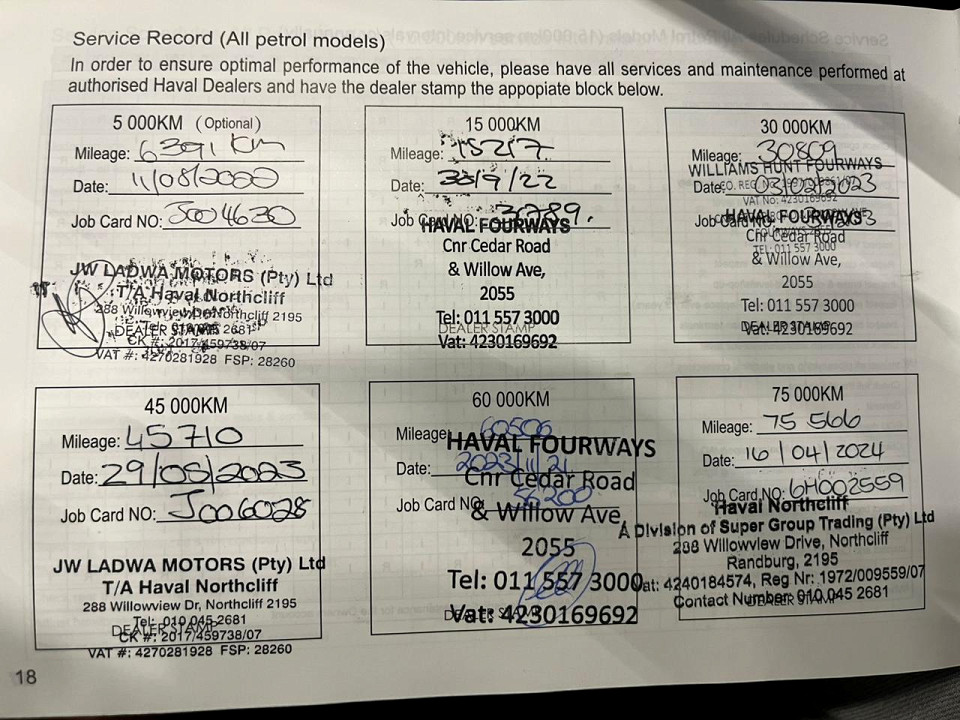 Service Record (All petrol models)
In order to ensure optimal performance of the vehicle, please have all services and maintenance performed at
authorised Haval Dealers and have the dealer stamp the appopiate block below.
5 000KM (Optional)
Mileage: 6391 km
Date: 11/08/2022
Job Card NO: J004630
JW LADWA MOTORS (Pty) Ltd
T/A Haval Northcliff
288 Willowview Dr, Northcliff 2195
DEALER STAMP
CK #: 2017/459738/07
VAT #: 4270281928 FSP: 28260
15 000KM
Mileage: 15217
Date: 30/9/22
Job Card NO: 3789.
HAVAL FOURWAYS
Cnr Cedar Road
& Willow Ave,
2055
Tel: 011 557 3000
DEALER STAMP
Vat: 4230169692
30 000KM
Mileage: 30809
WILLIAMS HUNT FOURWAYS
Date: 03/02/2023
VAT No: 4230169692
Job Card NO:
HAVAL FOURWAYS
Cnr Cedar Road
& Willow Ave,
2055
Tel: 011 557 3000
DEALER STAMP
Vat: 4230169692
45 000KM
Mileage: 45710
Date: 29/05/2023
Job Card NO: J006028
JW LADWA MOTORS (Pty) Ltd
T/A Haval Northcliff
288 Willowview Dr, Northcliff 2195
Tel: 010 045 2681
DEALER STAMP
CK #: 2017/459738/07
VAT #: 4270281928 FSP: 28260
60 000KM
Mileage: 60506
HAVAL FOURWAYS
Date: 2023/11/21
Cnr Cedar Road
Job Card NO: 56200
& Willow Ave,
2055
Tel: 011 557 3000
DEALER STAMP
Vat: 4230169692
75 000KM
Mileage: 75 566
Date: 16/04/2024
Job Card NO: 6H002559
Haval Northcliff
A Division of Super Group Trading (Pty) Ltd
288 Willowview Drive, Northcliff
Randburg, 2195
Vat: 4240184574, Reg Nr: 1972/009559/07
Contact Number: 010 045 2681
DEALER STAMP
18